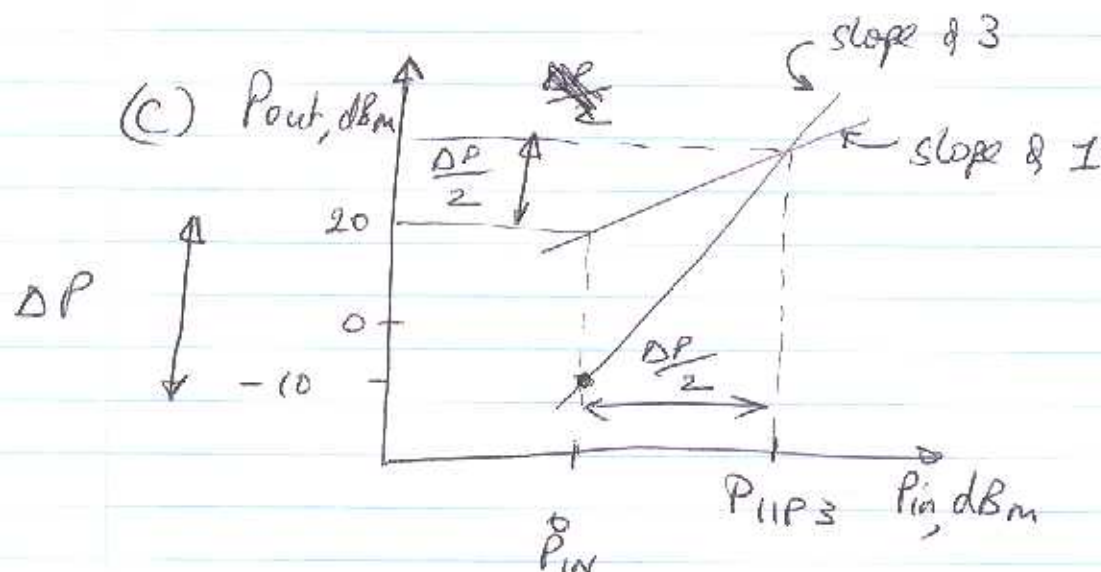 (C) Pout, dBm
slope of 3
slope of 1
ΔP/2
20
ΔP
0
ΔP/2
-10
P11P3
Pin, dBm
PIN